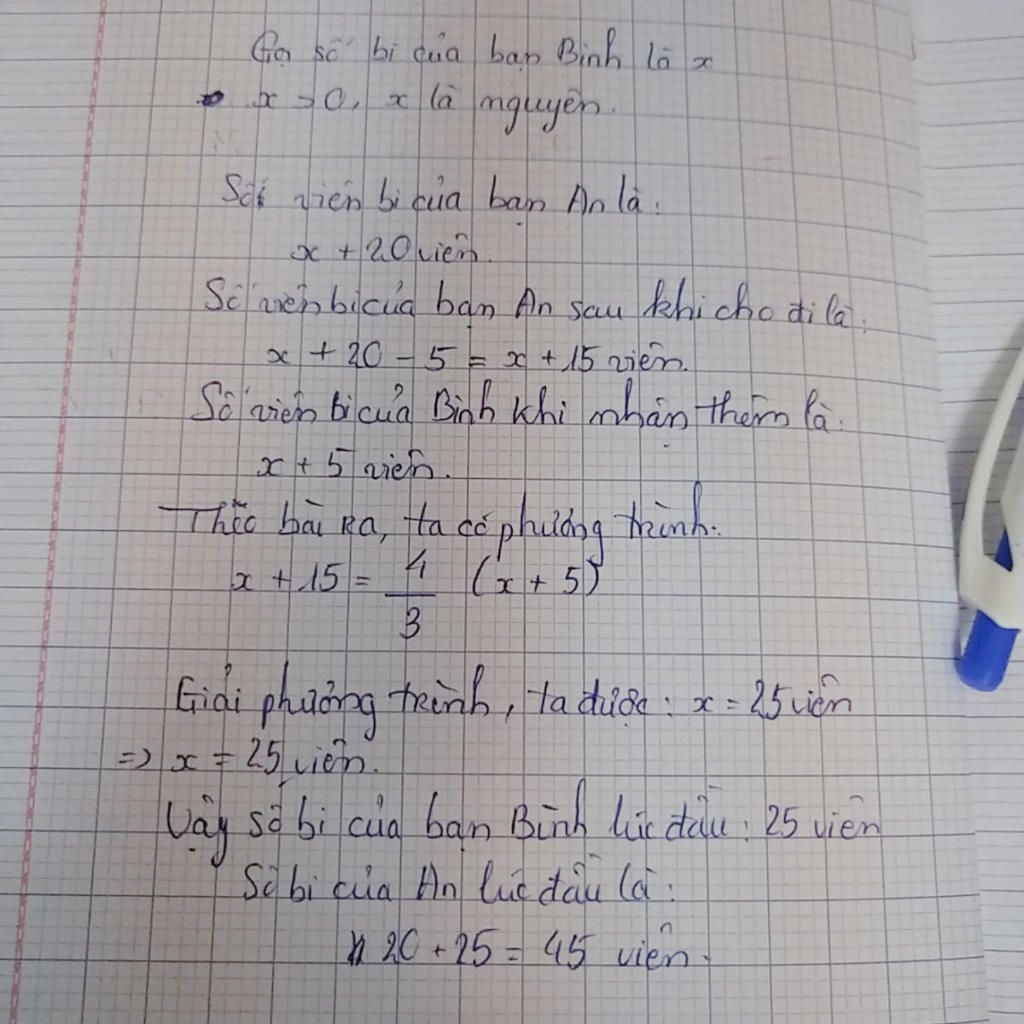 Gọi số bi của bạn Bình là x
x > 0, x là nguyên.
Số viên bi của bạn An là:
x + 20 viên.
Số viên bi của bạn An sau khi cho đi là:
x + 20 - 5 = x + 15 viên.
Số viên bi của Bình khi nhận thêm là:
x + 5 viên.
Theo bài ra, ta có phương trình:
x + 15 = 4/3 (x + 5)
Giải phương trình, ta được: x = 25 viên
=> x = 25 viên.
Vậy số bi của bạn Bình lúc đầu: 25 viên
Số bi của An lúc đầu là:
20 + 25 = 45 viên.